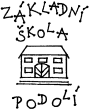 ZÁKLADNÍ
ŠKOLA
PODOLÍ